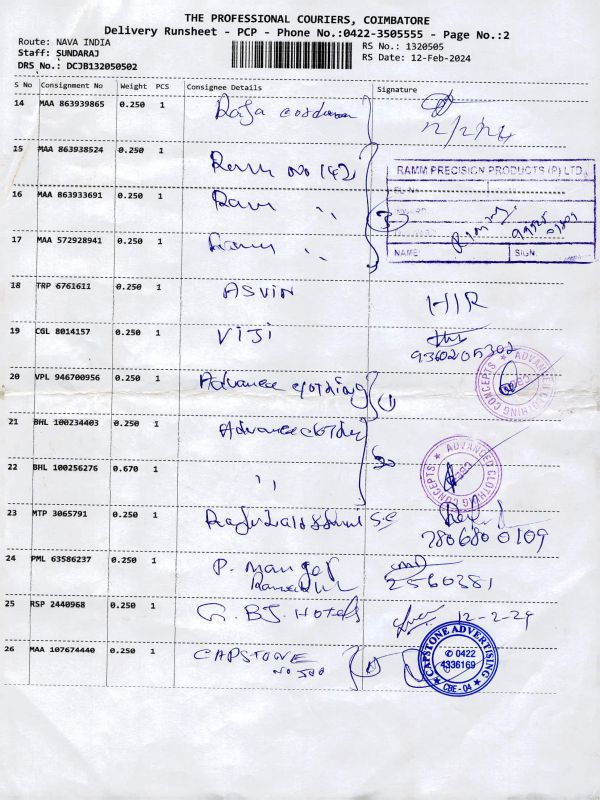 THE PROFESSIONAL COURIERS, COIMBATORE
Delivery Runsheet - PCP - Phone No.:0422-3505555 - Page No.:2
Route: NAVA INDIA
RS No.: 1320505
Staff: SUNDARAJ
RS Date: 12-Feb-2024
DRS No.: DCJB132050502
S No Consignment No Weight PCS Consignee Details Signature
14 MAA 863939865 0.250 1
12/2/24
15 MAA 863938524 0.250 1 Ramm No 142
RAMM PRECISION PRODUCTS (P) LTD.,
16 MAA 863933691 0.250 1 Ramm ,,
3
17 MAA 572928941 0.250 1 Ramm ,,
NAME: SIGN.
18 TRP 6761611 0.250 1 ASVIN HIR
19 CGL 8014157 0.250 1 VIJI
9360205302
20 VPL 946700956 0.250 1 Advance clothing 1
ADVANCED CLOTHING CONCEPTS
21 BHL 100234403 0.250 1 Advance clothing
22 BHL 100256276 0.670 1 ,,
ADVANCED CLOTHING CONCEPTS
23 MTP 3065791 0.250 1
7806800109
24 PML 63586237 0.250 1 P. Manger
2560381
25 RSP 2440968 0.250 1 G.BJ. Hotels 12-2-24
26 MAA 107674440 0.250 1 CAPSTONE
CAPSTONE ADVERTISING
✆ 0422
4336169
CBE-04